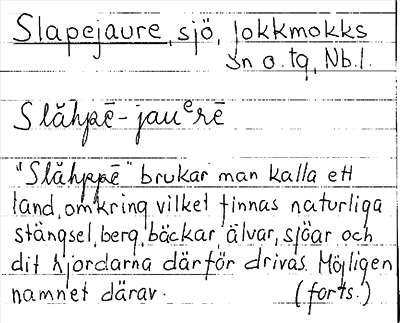 Slapejaure, sjö, Jokkmokks
sn o. tg, Nb.l.
Slăhpē-jauᵉrē
"Slăhppē" brukar man kalla ett
land, omkring vilket finnas naturliga
stängsel, berg, bäckar, älvar, sjöar och
dit hjordarna därför drivas. Möjligen
namnet därav. (forts.)